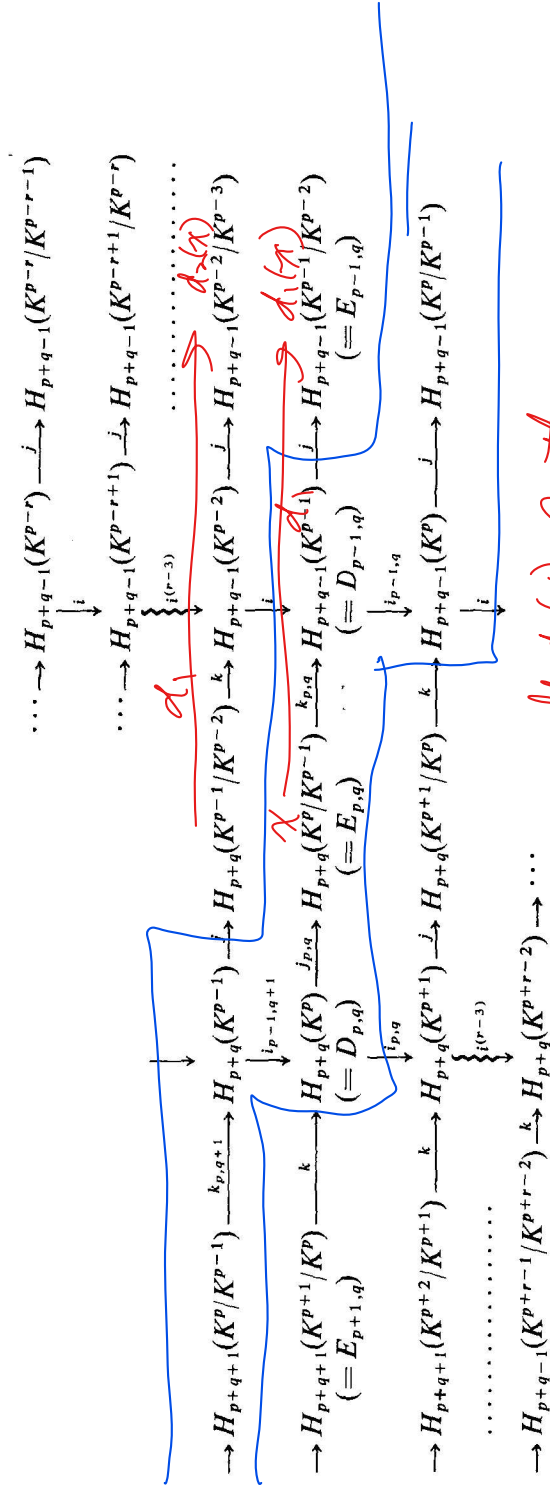 ⋯ → H_{p+q-1}(K^{p-r}) —j→ H_{p+q-1}(K^{p-r}/K^{p-r-1})
↓ i
⋯ → H_{p+q-1}(K^{p-r+1}) —j→ H_{p+q-1}(K^{p-r+1}/K^{p-r})
↓ i^{(r-3)} ..............
d_1 d_2(x)
→ H_{p+q+1}(K^p/K^{p-1}) —k_{p,q+1}→ H_{p+q}(K^{p-1}) —j→ H_{p+q}(K^{p-1}/K^{p-2}) —k→ H_{p+q-1}(K^{p-2}) —j→ H_{p+q-1}(K^{p-2}/K^{p-3})
↓ i_{p-1,q+1} ↓ i
x d_1 d_1(x)
→ H_{p+q+1}(K^{p+1}/K^p) —k→ H_{p+q}(K^p) —j_{p,q}→ H_{p+q}(K^p/K^{p-1}) —k_{p,q}→ H_{p+q-1}(K^{p-1}) —j→ H_{p+q-1}(K^{p-1}/K^{p-2})
(= E_{p+1,q}) (= D_{p,q}) (= E_{p,q}) (= D_{p-1,q}) (= E_{p-1,q})
↓ i_{p,q} ↓ i_{p-1,q}
→ H_{p+q+1}(K^{p+2}/K^{p+1}) —k→ H_{p+q}(K^{p+1}) —j→ H_{p+q}(K^{p+1}/K^p) —k→ H_{p+q-1}(K^p) —j→ H_{p+q-1}(K^p/K^{p-1})
.............. ↓ i^{(r-3)} ↓ i
→ H_{p+q-1}(K^{p+r-1}/K^{p+r-2}) —k→ H_{p+q}(K^{p+r-2}) → ⋯